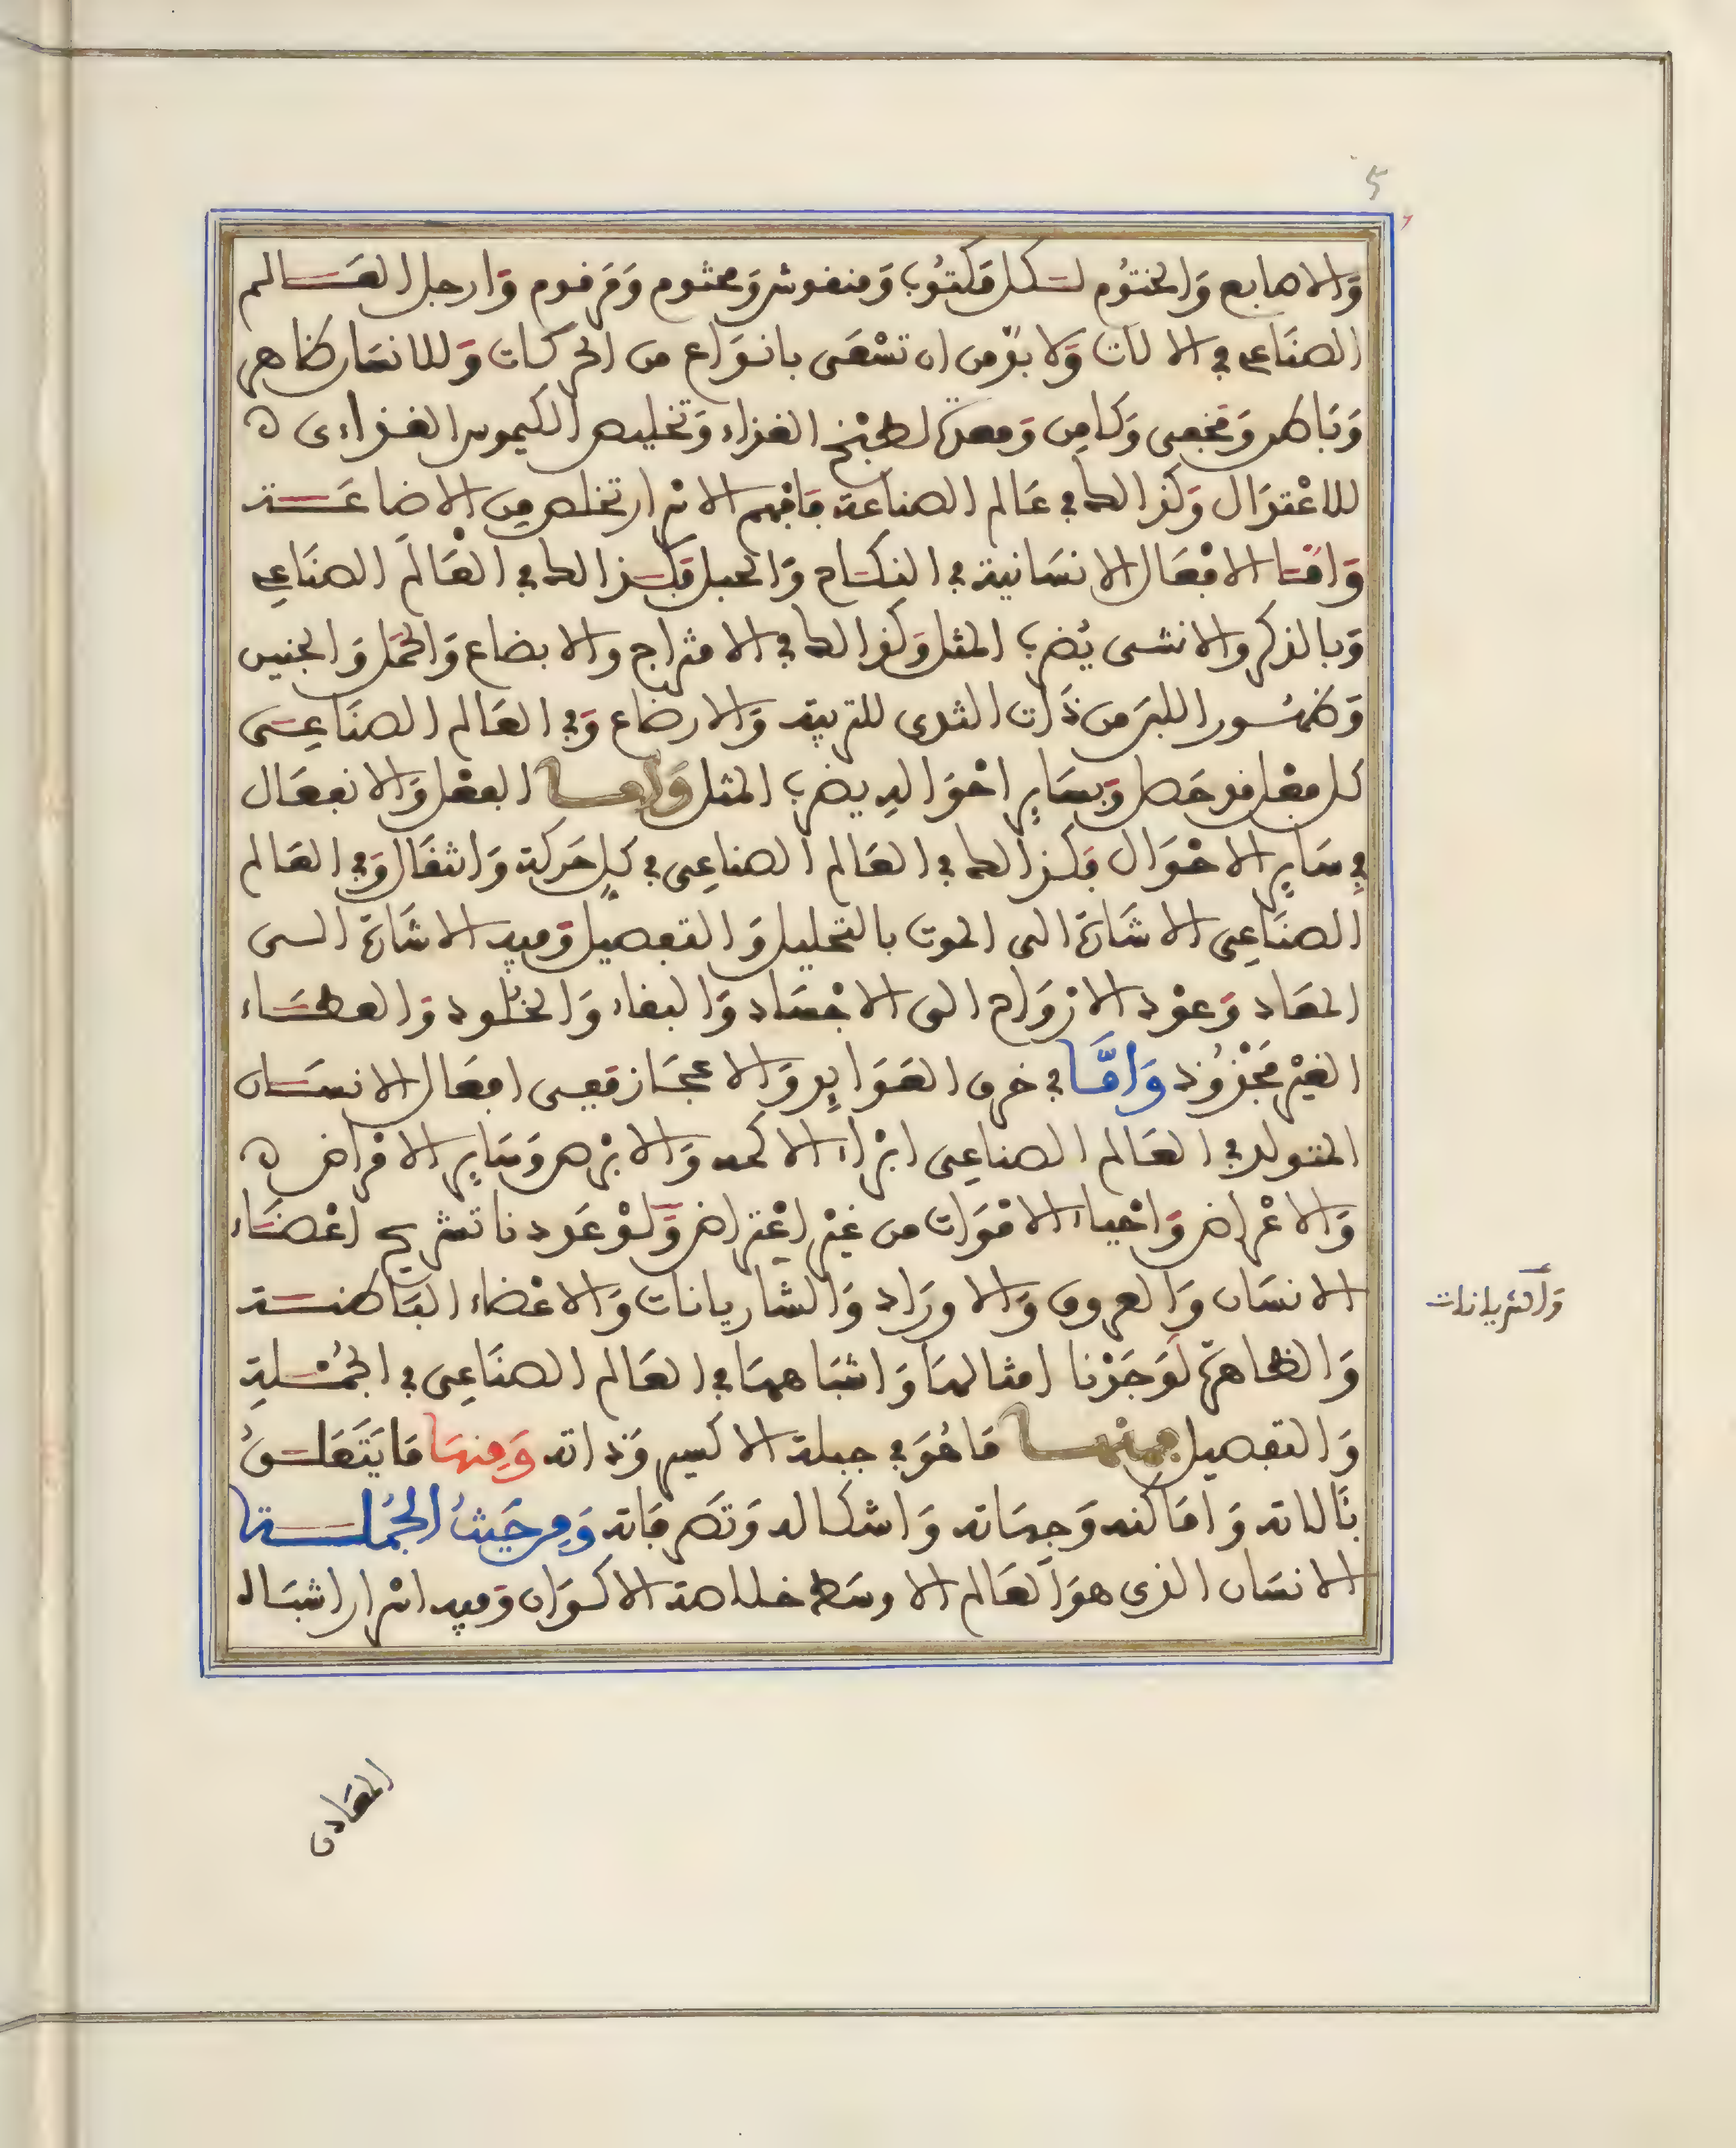 ٥
والاصابع والختوم لكل مكتوب ومنقوش ومختوم ومرقوم وارجل العالم
الصناعي في الالات ولا بد من ان تسعى بانواع من الحركات وللانسان ظاهر
وباطن ومخفى وكامن ومعدة لطبخ الغذاء وتخليص الكيموس الغذاءى ه
للاعتدال وكذالك في عالم الصناعة فافهم الاسرار تخلص من الاضاعة
وامّا الافعال الانسانية في النكاح والحبل فكذالك في العالم الصناعي
وبالذكر والانثى يُضرب المثل وكذالك في الامتزاج والابضاع والحمل والجنين
وظهور اللبن من ذات الثدى للتربية والارضاع وفي العالم الصناعى
كل فعل قد حصل وبساير احواله يضرب المثل وامـا الفعل والانفعال
في ساير الاحوال فكذالك في العالم الصناعى في كل حركة وانتقال وفي العالم
الصناعى الاشارة الى الموت بالتحليل والتفصيل وفيه الاشارة الى
المعاد وعود الارواح الى الاجساد والبقاء والخلود والعطاء
الغير مجذوذ وامّا في خرق العوايد والاعجاز ففى افعال الانسان
المتولد في العالم الصناعى ابراء الاكمه والابرص وساير الامراض ه
والاعراض واحياء الاموات من غير اعتراض ولو عددنا تشريح اعضاء
الانسان والعروق والاوراد والشاريانات والاعضاء الباطنة
والشريانات
والظاهرة لوجدنا امثالها واشباهها في العالم الصناعى في الجملة
والتفصيل فمنها ما هو في جبلة الاكسير وذاته ومنها ما يتعلق
بالاته واماكنه وجهاته واشكاله وتصرفاته ومن حيث الجملة
الانسان الذى هو العالم الاوسط خلاصة الاكوان وفيه اسرار اشباه
المعادن